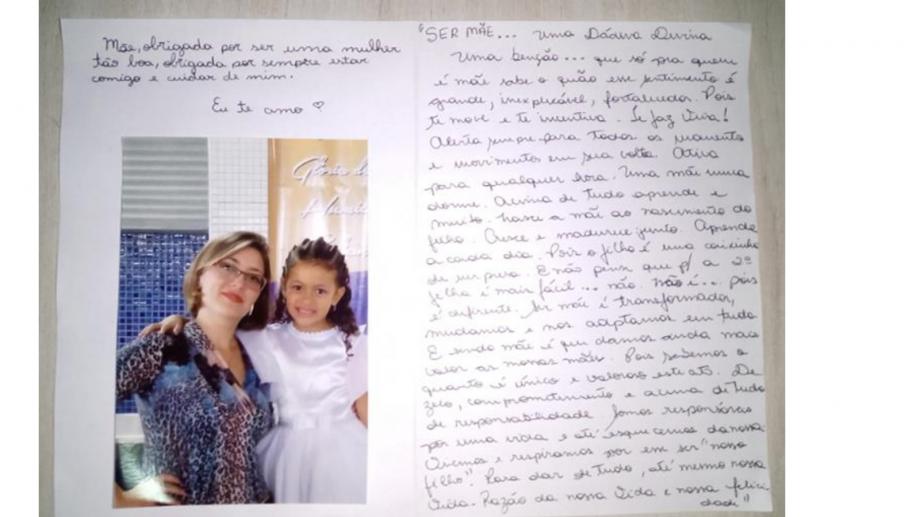 Mãe, obrigada por ser uma mulher
tão boa, obrigada por sempre estar
comigo e cuidar de mim.
Eu te amo ♡
"SER MÃE... uma Dádiva Divina
Uma benção... que só pra quem
é mãe sabe o quão esse sentimento é
grande, inexplicável, fortalecedor. Pois
te move e te incentiva. Se faz viva!
Alerta sempre para todos os momento
e movimento em sua volta. Ativa
para qualquer hora. Uma mãe nunca
dorme. Acima de tudo aprende e
muito. Nasce a mãe ao nascimento do
filho. Cresce e madurece junto. Aprende
a cada dia. Pois o filho é uma caixinha
de surpresa. E não pense que p/ a 2ª
filha é mais fácil... não. Não é... pois
é diferente. Ser mãe é transformador,
mudamos e nos adaptamos em tudo
E sendo mãe é que damos ainda mais
valor as nossas mães. Pois sabemos o
quanto é único e valoroso este ato. De
zelo, comprometimento e acima de tudo
de responsabilidade. Somos responsáveis
por uma vida e até esquecemos da nossa.
Vivemos e respiramos por em ser "nosso
filho". Para dar de tudo, até mesmo nossa
vida. Razão da nossa vida e nossa felici
dade"